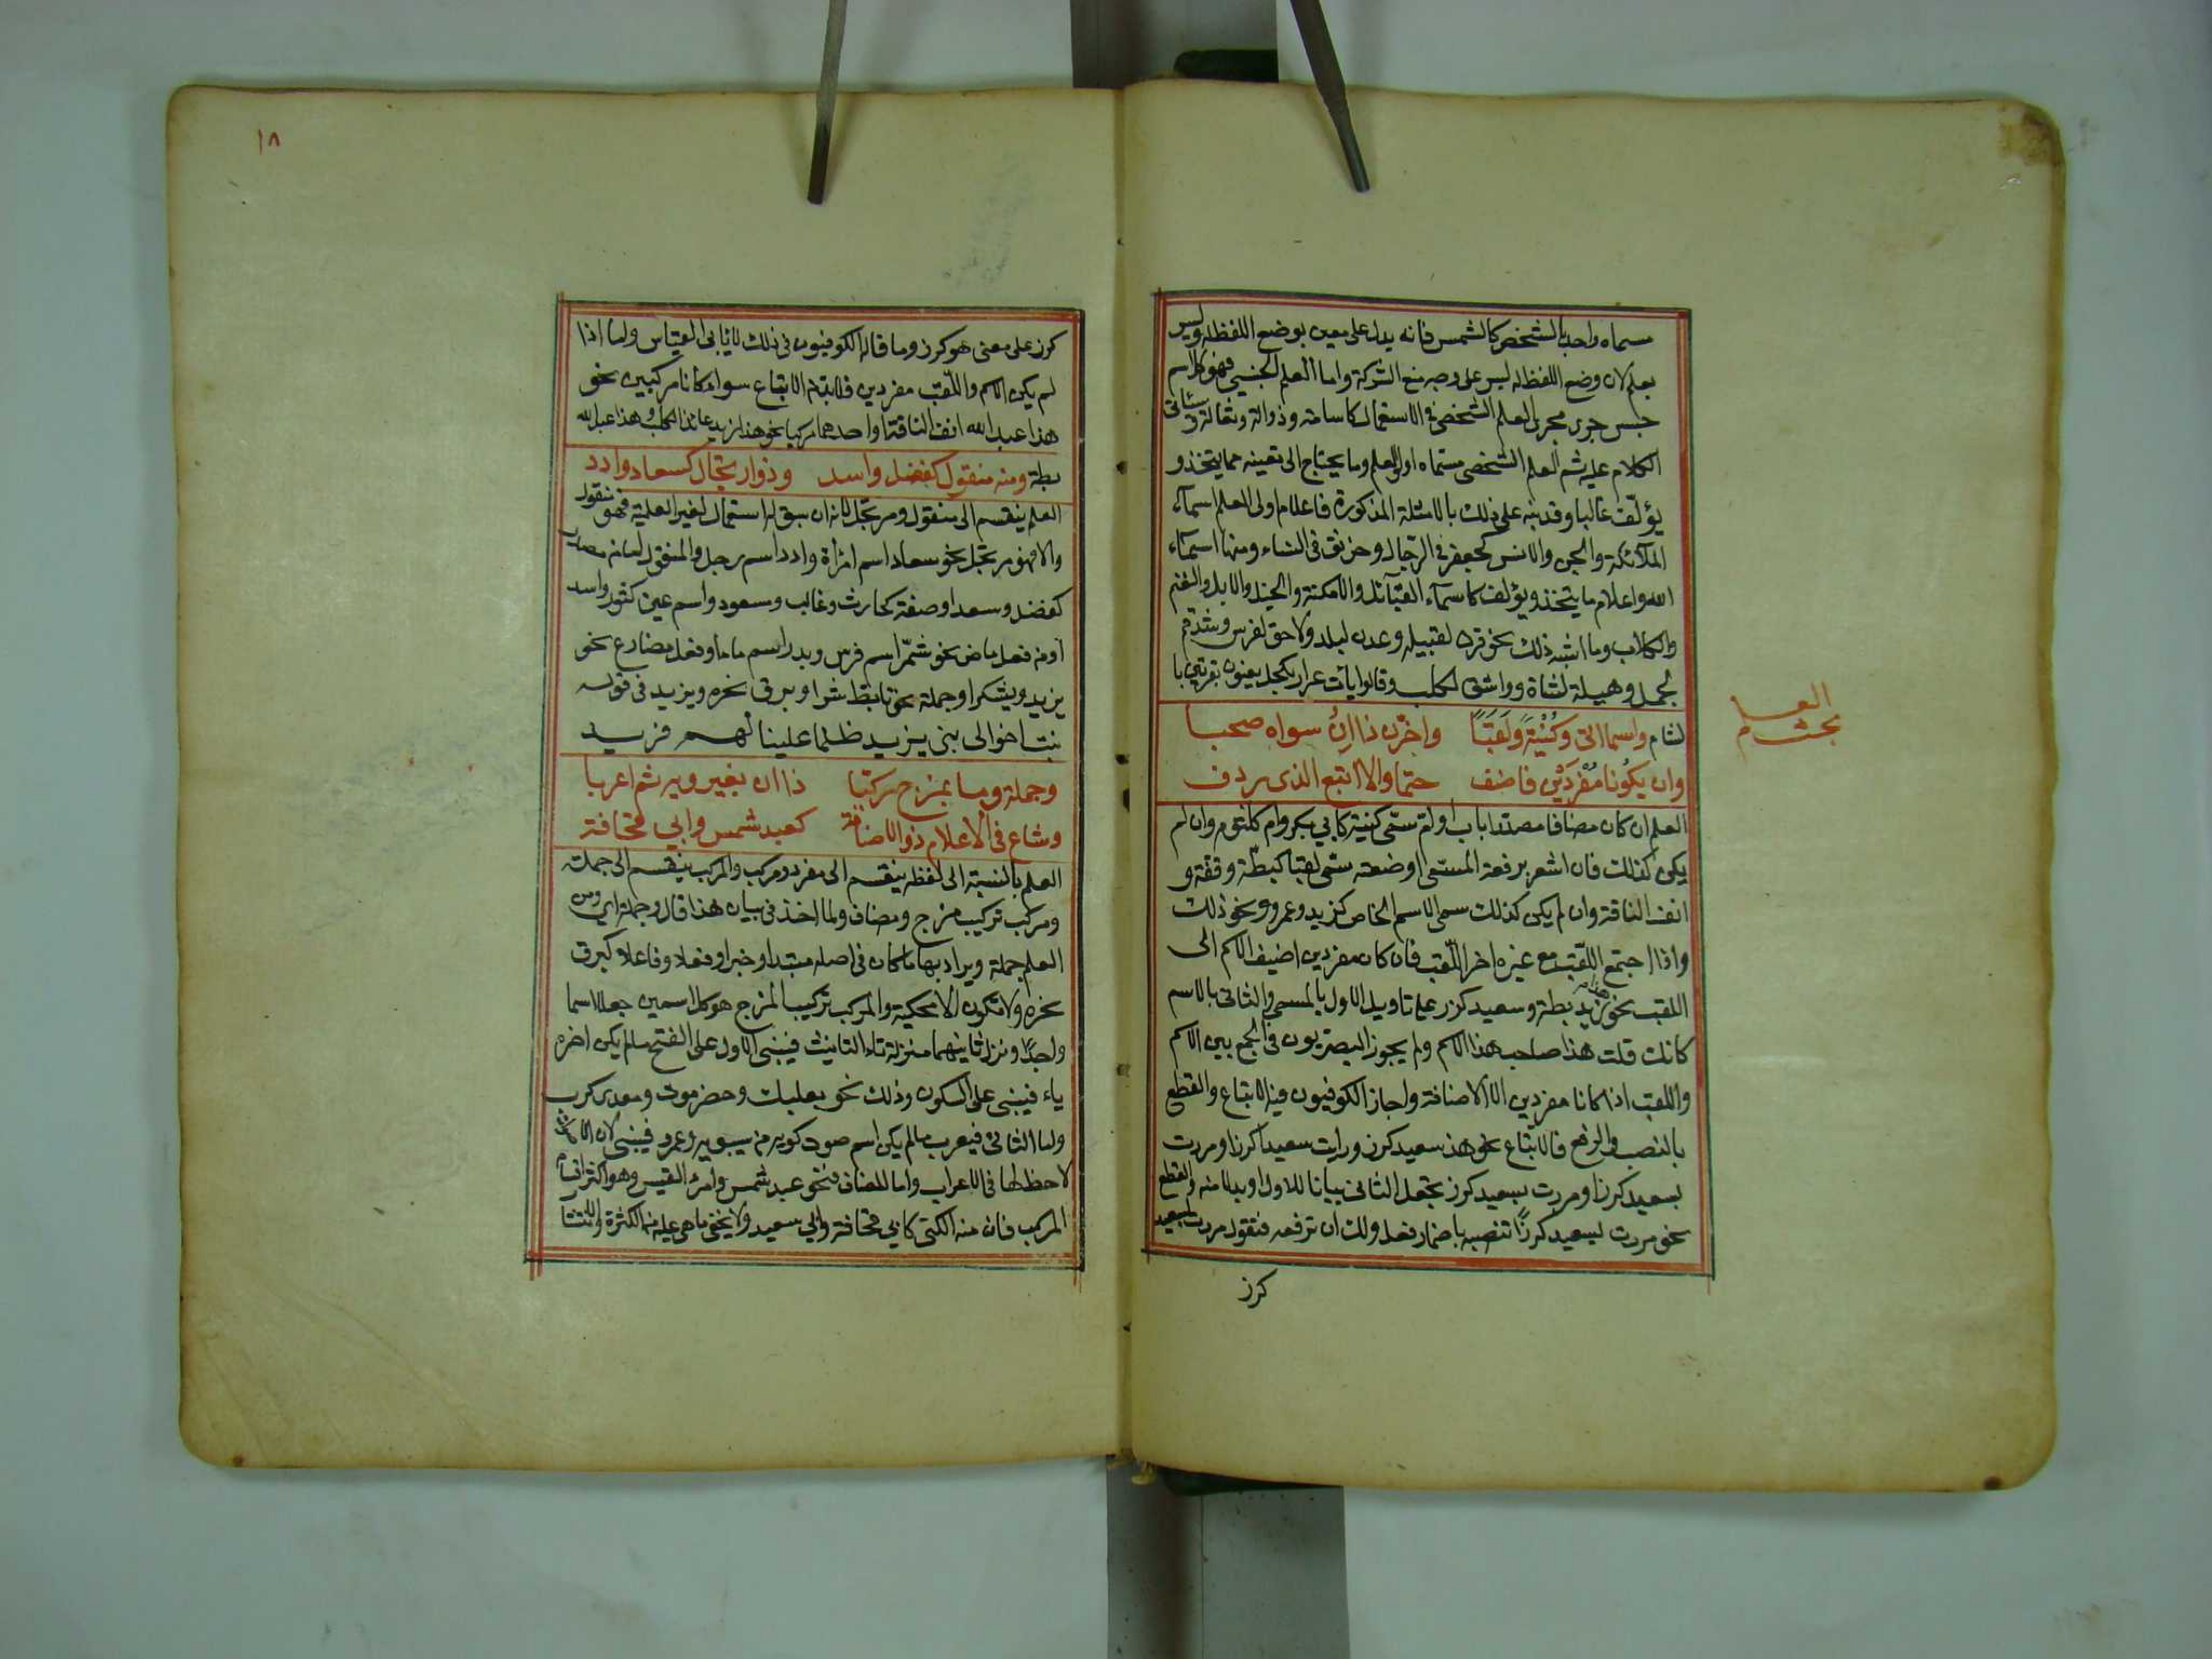 مسماه واحد بالشخص كالشمس فانه يدل على معين بوضع اللفظ له وليس
بعلم لان وضع اللفظ له ليس على وجه منع الشركة واما العلم الجنسي فهو كل اسم
جنس جرى مجرى العلم الشخصي في الاستعمال كاسامة وذوالة وثعالة وسياتي
الكلام عليه ثم العلم الشخصي مسماه اولوا العلم وما يحتاج الى تعيينه مما يتخذ و
يؤلف غالبا وقد نبه على ذلك بالامثلة المذكورة فاعلام اولى العلم اسماء
الملائكة والجن والانس كجعفر في الرجال وخرنق في النساء ومنها اسماء
الله واعلام ما يتخذ ويؤلف كاسماء القبائل والامكنة والخيل والابل والغنم
والكلاب وما اشبه ذلك نحو قرن لقبيلة وعدن لبلد ولاحق لفرس وشذقم
لجمل وهيلة لشاة وواشق لكلب وقالوا باءت عرار بكحل يعنون بقرتين با
لشام واسما اتى وكنية ولقبا واخرن ذا ان سواه صحبا
وان يكونا مفردين فاضف حتما والا اتبع الذي ردف
العلم ان كان مضافا مصدرا باب او ام سمى كنية كابي بكر وام كلثوم وان لم
يكن كذلك فان اشعر برفعة المسمى او ضعته سمى لقبا كبطة وقفة و
انف الناقة وان لم يكن كذلك سمى الاسم الخاص كزيد وعمرو ونحو ذلك
واذا اجتمع اللقب مع غيره اخر اللقب فان كان مفردين اضيف الاسم الى
اللقب نحو هذا زيد بطة وسعيد كرز على تاويل الاول بالمسمى والثاني بالاسم
كانك قلت هذا صاحب هذا الاسم ولم يجوز البصريون في الجمع بين الاسم
واللقب اذا كانا مفردين الا الاضافة واجاز الكوفيون فيه الاتباع والقطع
بالنصب والرفع فالاتباع نحو هذ سعيد كرز ورايت سعيدا كرزا ومررت
بسعيد كرزا ومررت بسعيد كرز بجعل الثاني بيانا للاول او بدلا منه والقطع
نحو مررت بسعيد كرزا تنصبه باضمار فعل ولك ان ترفعه فتقول مررت بسعيد
كرز
العلم
بحث
١٨
كرز على معنى هو كرز وما قاله الكوفيون في ذلك لا يابى القياس واما اذا
لم يكن الاسم واللقب مفردين فلا بد من الاتباع سواء كانا مركبين نحو
هذا عبد الله انف الناقة او احدهما مركبا نحو هذا زيد عائذ الكلب وهذا عبد الله
بطة ومنه منقول كفضل واسد وذو ارتجال كسعاد وادد
العلم ينقسم الى منقول ومرتجل لانه ان سبق له استعمال لغير العلمية فهو منقول
والا فهو مرتجل نحو سعاد اسم امراة وادد اسم رجل والمنقول اما من مصدر
كفضل وسعد او صفة كحارث وغالب ومسعود واسم عين كثور واسد
او من فعل ماض نحو شمر اسم فرس وبدر اسم ماء او فعل مضارع نحو
يزيد ويشكر او جملة نحو تابط شرا وبرق نحره ويزيد في قوله
نبئت اخوالي بني يزيد ظلما علينا لهم فزيد
وجملة وما بمزج ركبا ذا ان بغير ويه ثم اعربا
وشاع في الاعلام ذو الاضافة كعبد شمس وابي قحافة
العلم بالنسبة الى لفظه ينقسم الى مفرد ومركب والمركب ينقسم الى جملة
ومركب تركيب مزج ومضاف ولما اخذ في بيان هذا قال وجملة اي ومن
العلم جملة ويراد بها ما كان في اصله مبتدا وخبرا او فعلا وفاعلا كبرق
نحره ولا تكون الا محكية والمركب تركيب المزج هو كل اسمين جعلا اسما
واحدا ونزل ثانيهما منزلة تاء التانيث فيبنى الاول على الفتح ما لم يكن اخره
ياء فيبنى على السكون وذلك نحو بعلبك وحضرموت ومعدي كرب
واما الثاني فيعرب ما لم يكن اسم صوت كويه من سيبويه وعمرويه فيبنى لان الاصوات
لا حظ لها في الاعراب واما المضاف فنحو عبد شمس وامرئ القيس وهو اكثر اقسام
المركب فان منه الكنى كابي قحافة وابي سعيد ولا يخفى ما هي عليه من الكثرة